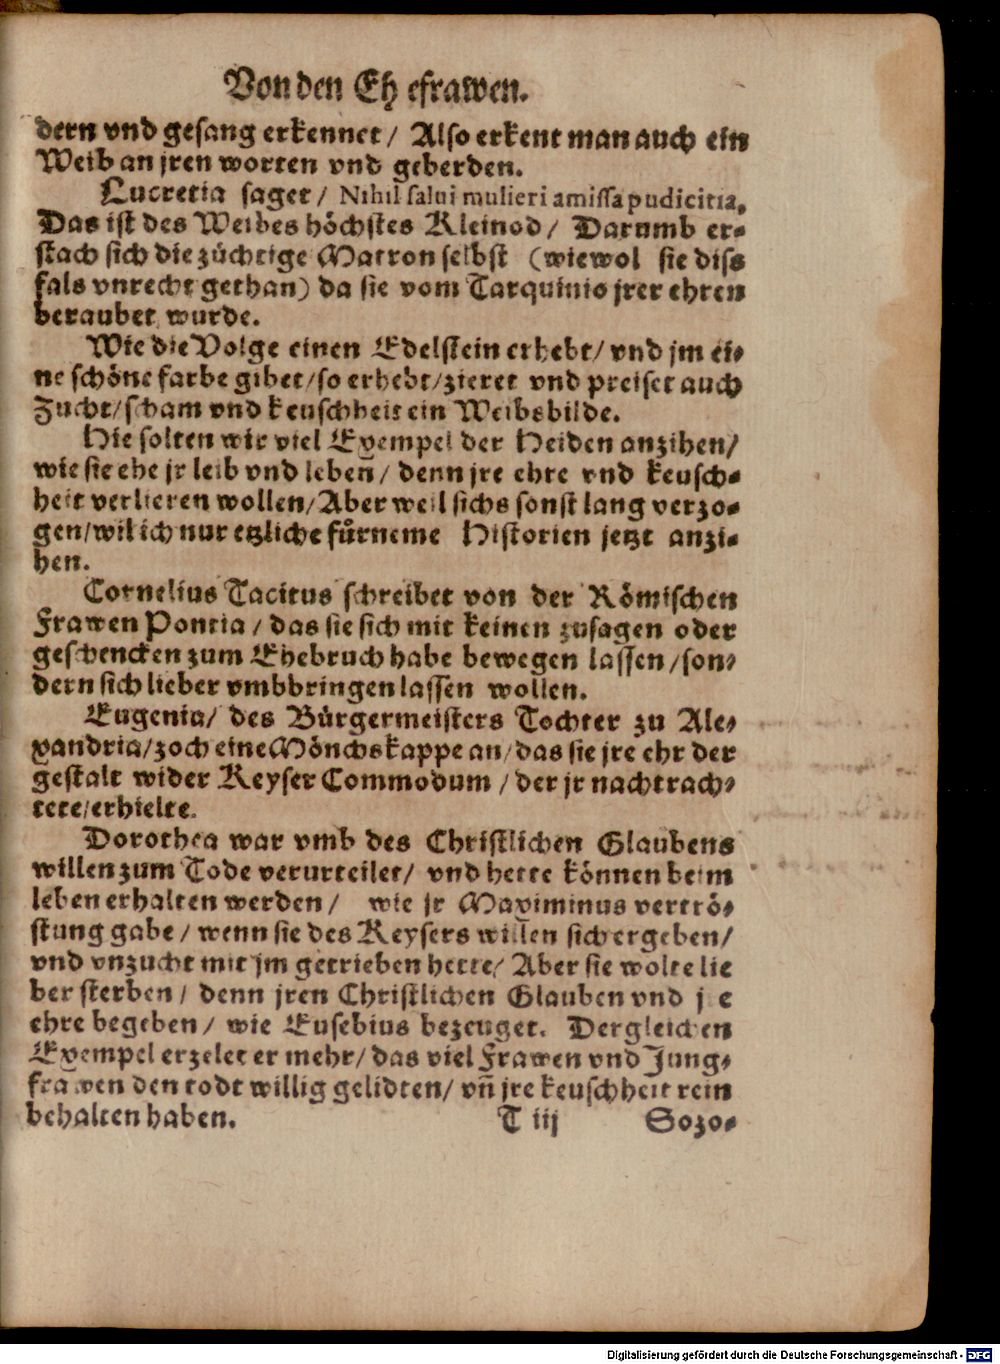 Von den Eh efrawen.
dern vnd gesang erkennet / Also erkent man auch ein
Weib an jren worten vnd geberden.
Lucretia saget / Nihil salui mulieri amissa pudicitia,
Das ist des Weibes höchstes Kleinod / Darumb er-
stach sich die züchtige Matron selbst (wiewol sie diss
fals vnrecht gethan) da sie vom Tarquinio jrer ehren
beraubet wurde.
Wie die Volge einen Edelstein erhebt / vnd jm ei-
ne schöne farbe gibet / so erhebt / zieret vnd preiset auch
Zucht / scham vnd keuschheit ein Weibsbilde.
Hie solten wir viel Exempel der Heiden anzihen /
wie sie ehe jr leib vnd lebeñ / denn jre ehre vnd keusch-
heit verlieren wollen / Aber weil sichs sonst lang verzo-
gen / wil ich nur etzliche fuͤrneme Historien jetzt anzi-
hen.
Cornelius Tacitus schreibet von der Römischen
Frawen Pontia / das sie sich mit keinen zusagen oder
geschencken zum Ehebruch habe bewegen lassen / son-
dern sich lieber vmbbringen lassen wollen.
Eugenia / des Bürgermeisters Tochter zu Ale-
xandria / zoch eine Mönchskappe an / das sie jre ehr der
gestalt wider Keyser Commodum / der jr nachtrach-
tete / erhielte.
Dorothea war vmb des Christlichen Glaubens
willen zum Tode verurteilet / vnd hette können beim
leben erhalten werden / wie jr Maximinus vertrö-
stung gabe / wenn sie des Keysers willen sich ergeben /
vnd vnzucht mit jm getrieben hette / Aber sie wolte lie
ber sterben / denn jren Christlichen Glauben vnd j e
ehre begeben / wie Eusebius bezeuget. Dergleichen
Exempel erzelet er mehr / das viel Frawen vnd Jung-
frawen den todt willig gelidten / vñ jre keuschheit rein
behalten haben. T iij Sozo-
Digitalisierung gefördert durch die Deutsche Forschungsgemeinschaft - DFG